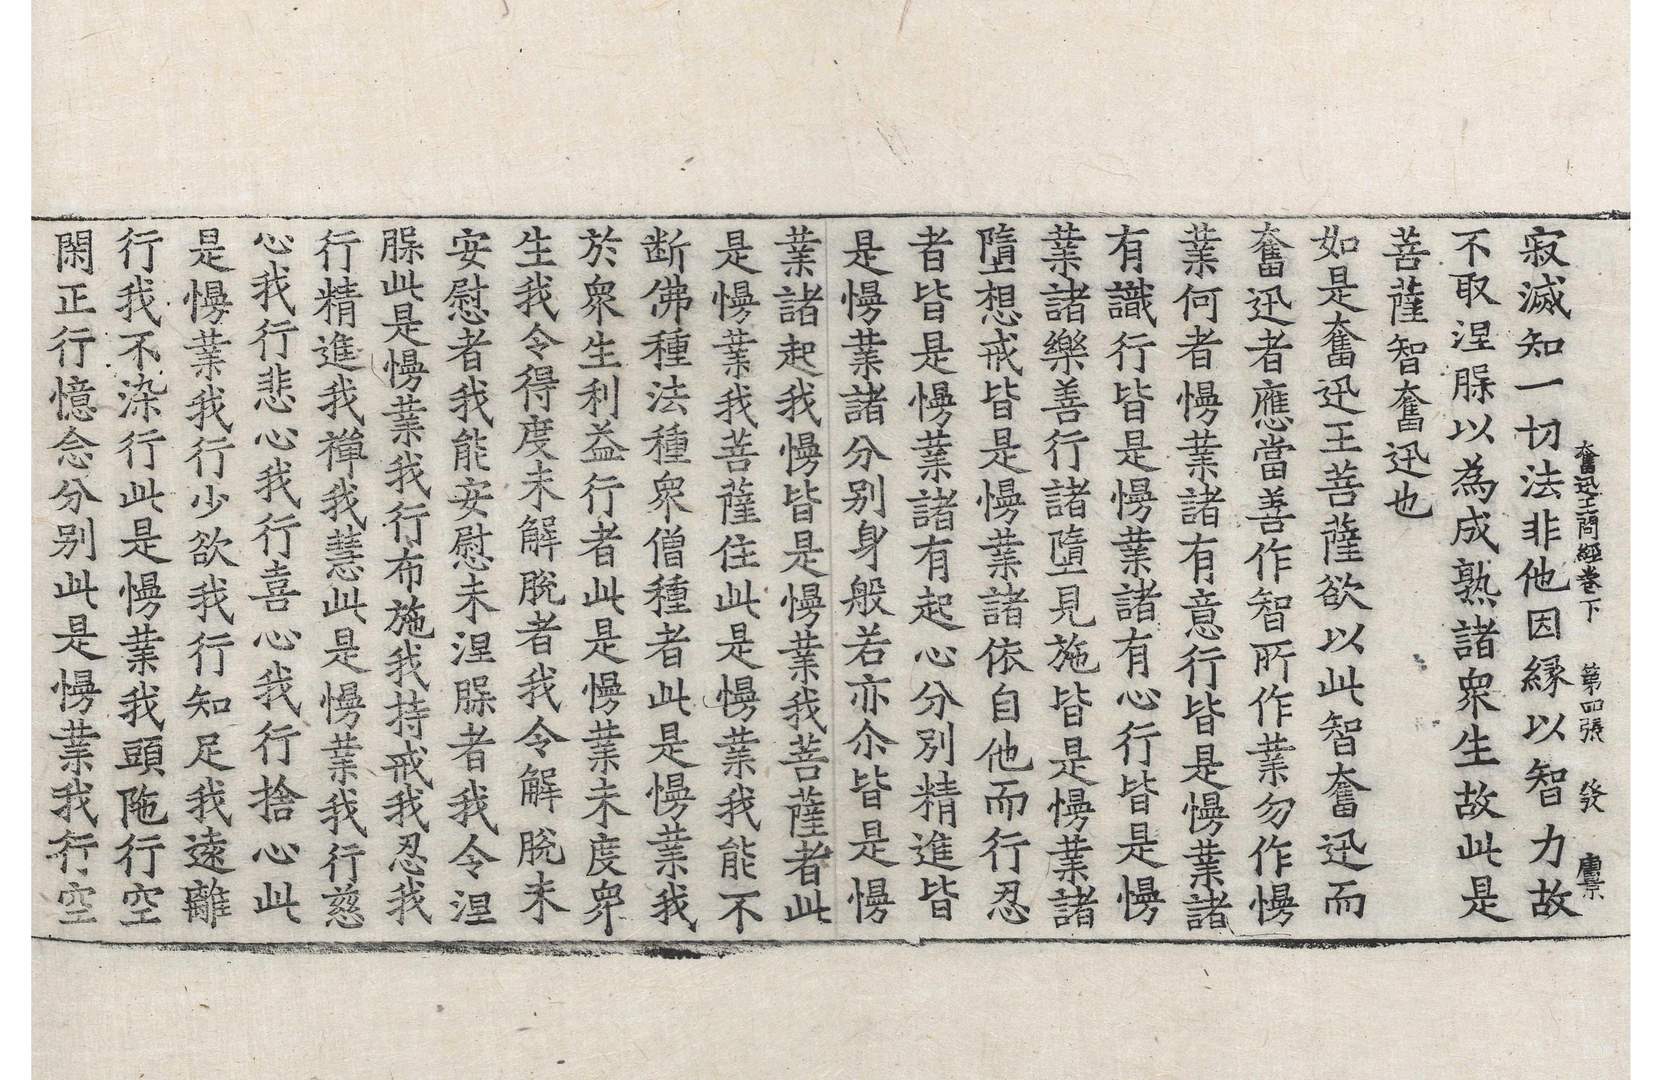 奮迅王問經卷下　第四張　發　庸景
寂滅知一切法非他因緣以智力故
不取涅腺以為成熟諸衆生故此是
菩薩智奮迅也
如是奮迅王菩薩欲以此智奮迅而
奮迅者應當善作智所作業勿作慢
業何者慢業諸有意行皆是慢業諸
有識行皆是慢業諸有心行皆是慢
業諸樂善行諸墮見施皆是慢業諸
墮想戒皆是慢業諸依自他而行忍
者皆是慢業諸有起心分別精進皆
是慢業諸分別身般若亦尒皆是慢
業諸起我慢皆是慢業我菩薩者此
是慢業我菩薩住此是慢業我能不
断佛種法種衆僧種者此是慢業我
於衆生利益行者此是慢業未度衆
生我令得度未解脫者我令解脫未
安慰者我能安慰未涅腺者我令涅
腺此是慢業我行布施我持戒我忍我
行精進我禪我慧此是慢業我行慈
心我行悲心我行喜心我行捨心此
是慢業我行少欲我行知足我遠離
行我不染行此是慢業我頭陁行空
閑正行憶念分別此是慢業我行空